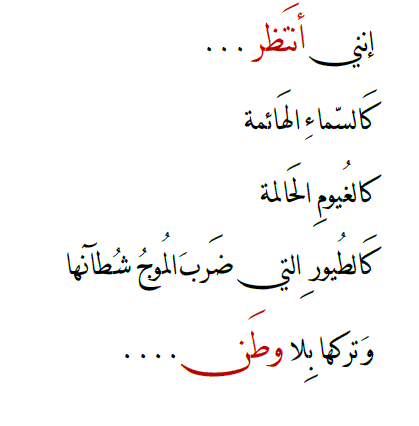 إنني أنتَظر . . .
كَالسّماءِ الهَائمة
كالغُيومِ الحَالمة
كَالطُيورِ التي ضَربَ المُوجُ شُطآنها
وَتركها بِلا وطَن . . . .